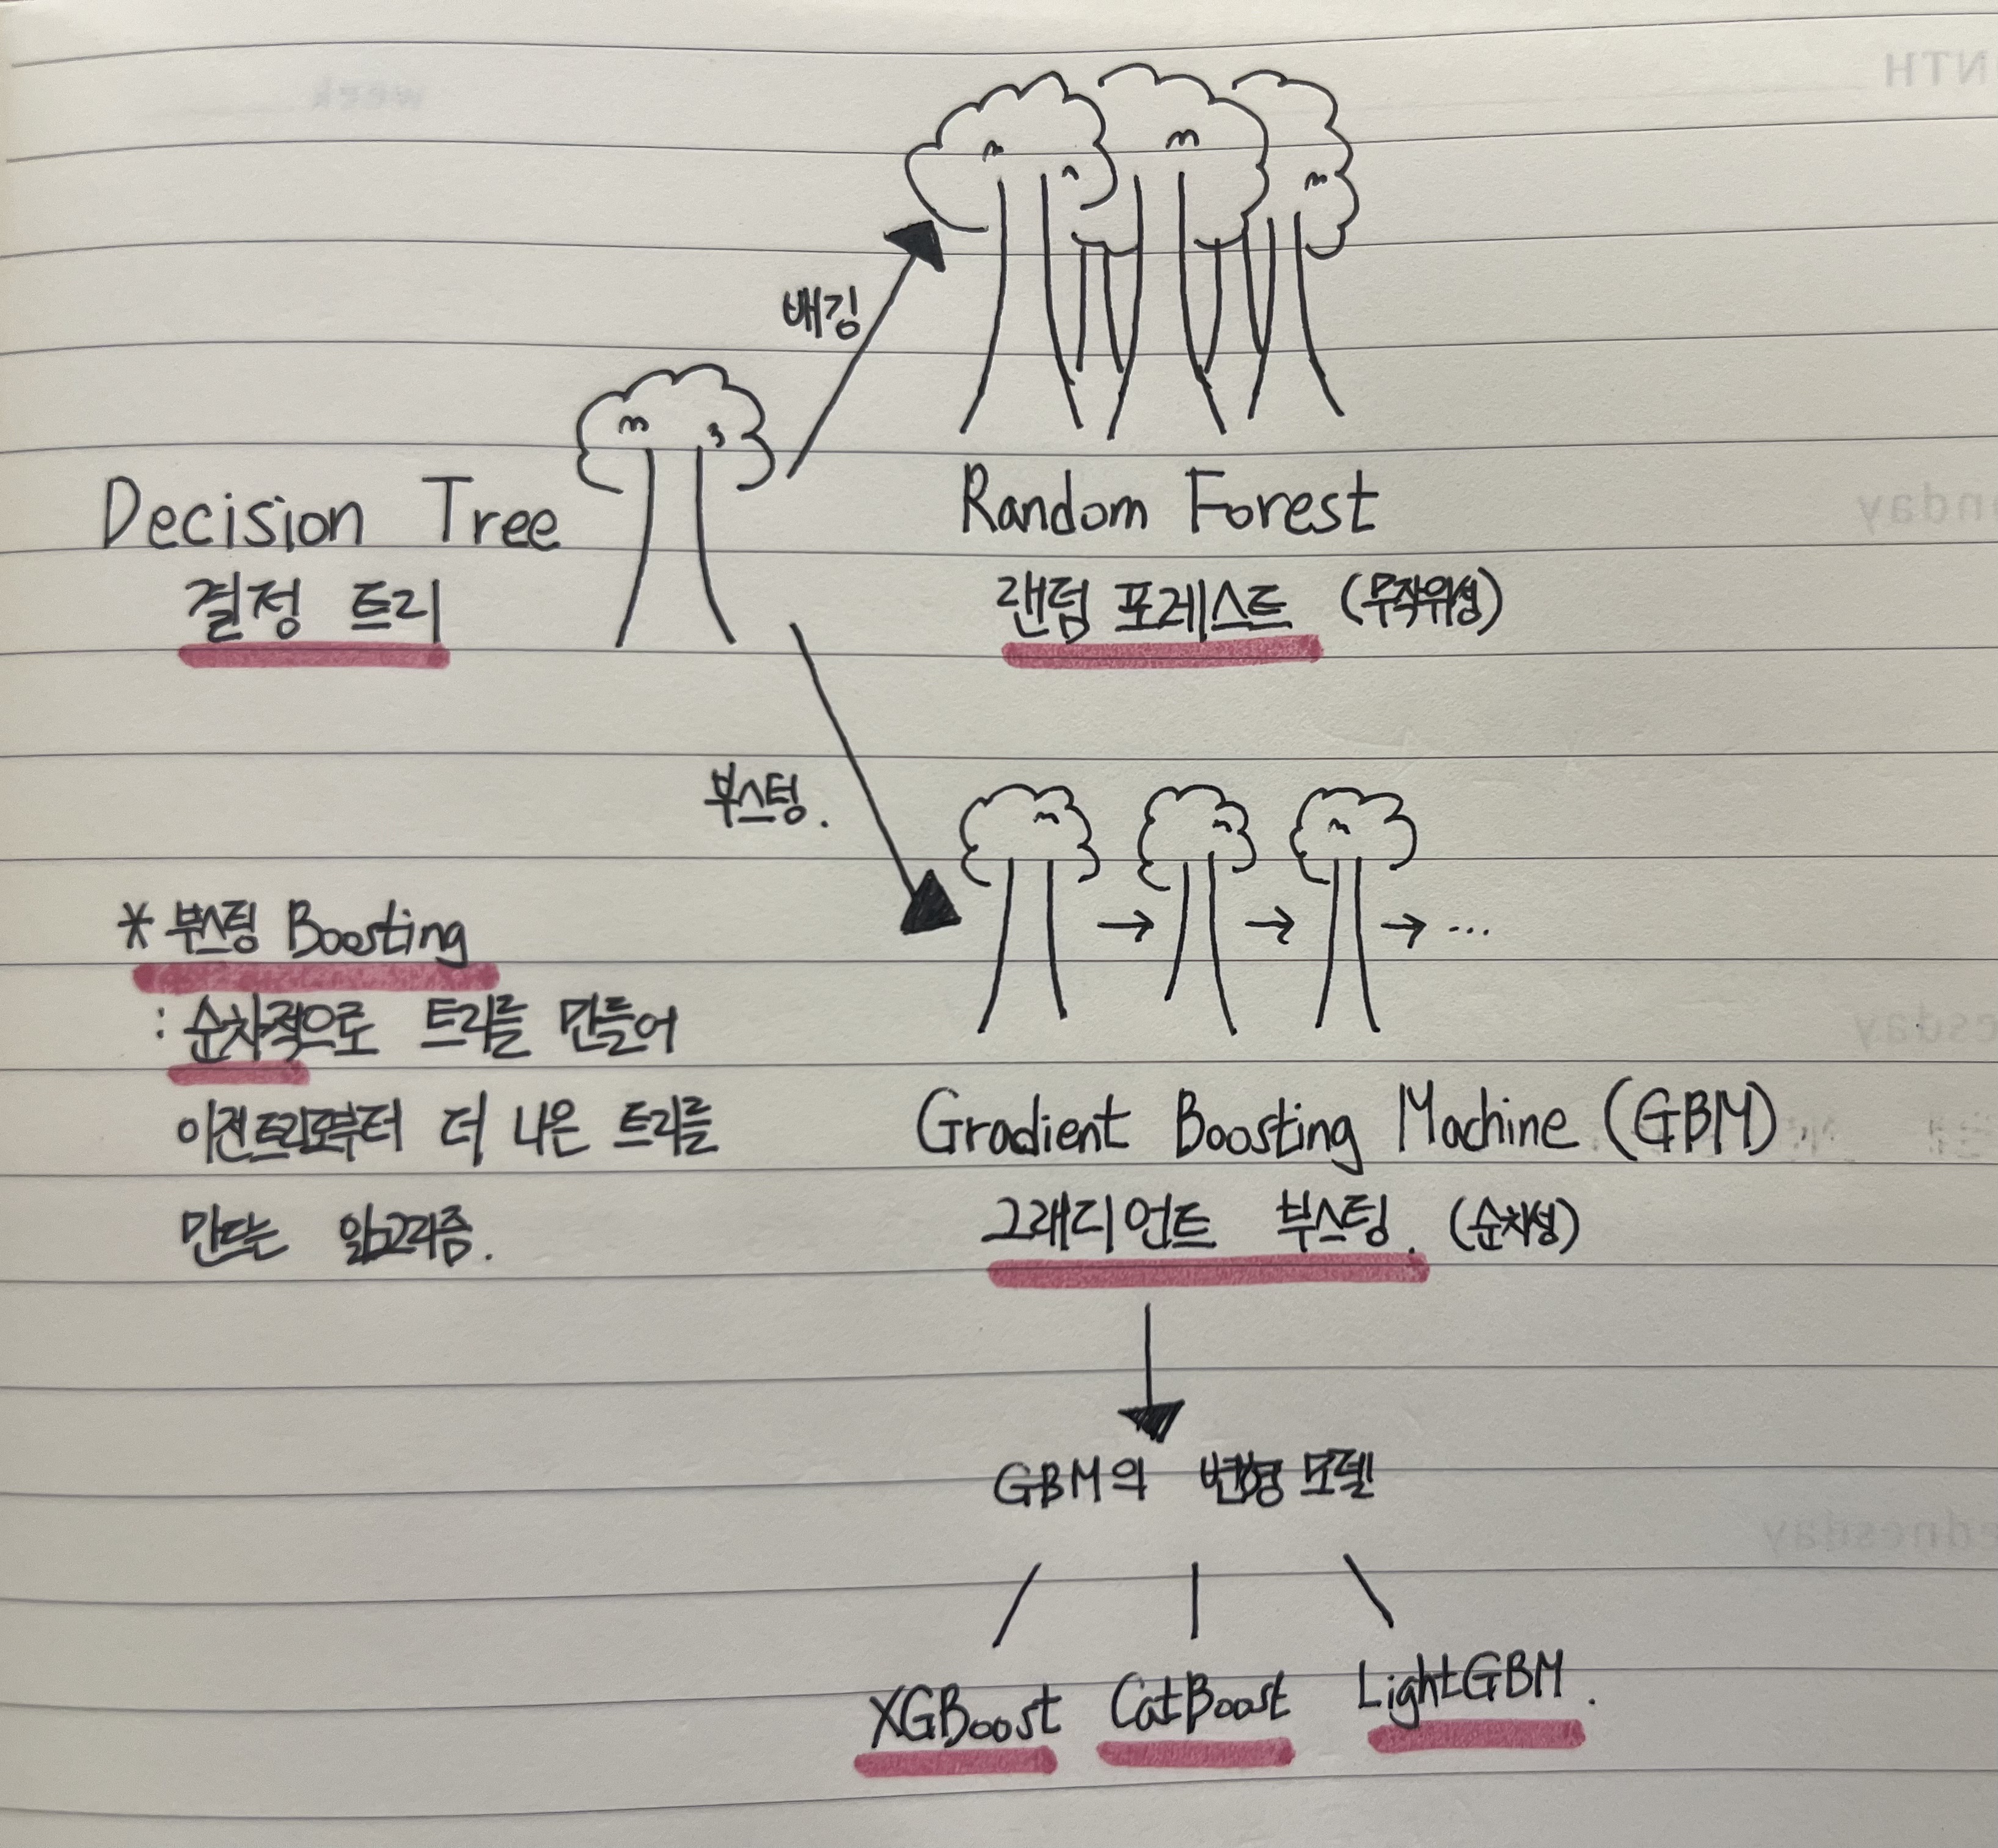 배깅
Decision Tree
결정 트리
Random Forest
랜덤 포레스트 (무작위성)
부스팅.
* 부스팅 Boosting
: 순차적으로 트리를 만들어
이전트리로부터 더 나은 트리를
만드는 알고리즘.
→ → → ...
Gradient Boosting Machine (GBM)
그래디언트 부스팅. (순차성)
GBM의 변형 모델
XGBoost CatBoost LightGBM.
week
NTH